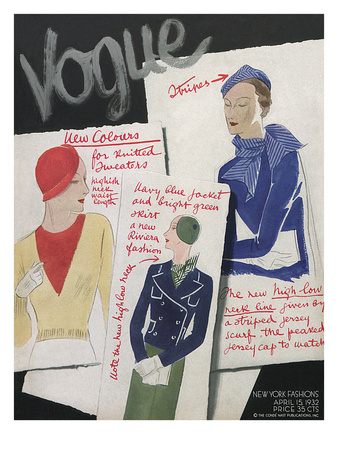 Vogue
Stripes
New Colours
for Knitted
Sweaters
highish
neck
waist
length
Navy blue jacket
and bright green
skirt
a new
Riviera
fashion
Note the new high low neck
The new high-low
neck line given by
a striped jersey
scarf. the peaked
jersey cap to match
NEW YORK FASHIONS
APRIL 15, 1932
PRICE 35 CTS
© THE CONDÉ NAST PUBLICATIONS, INC